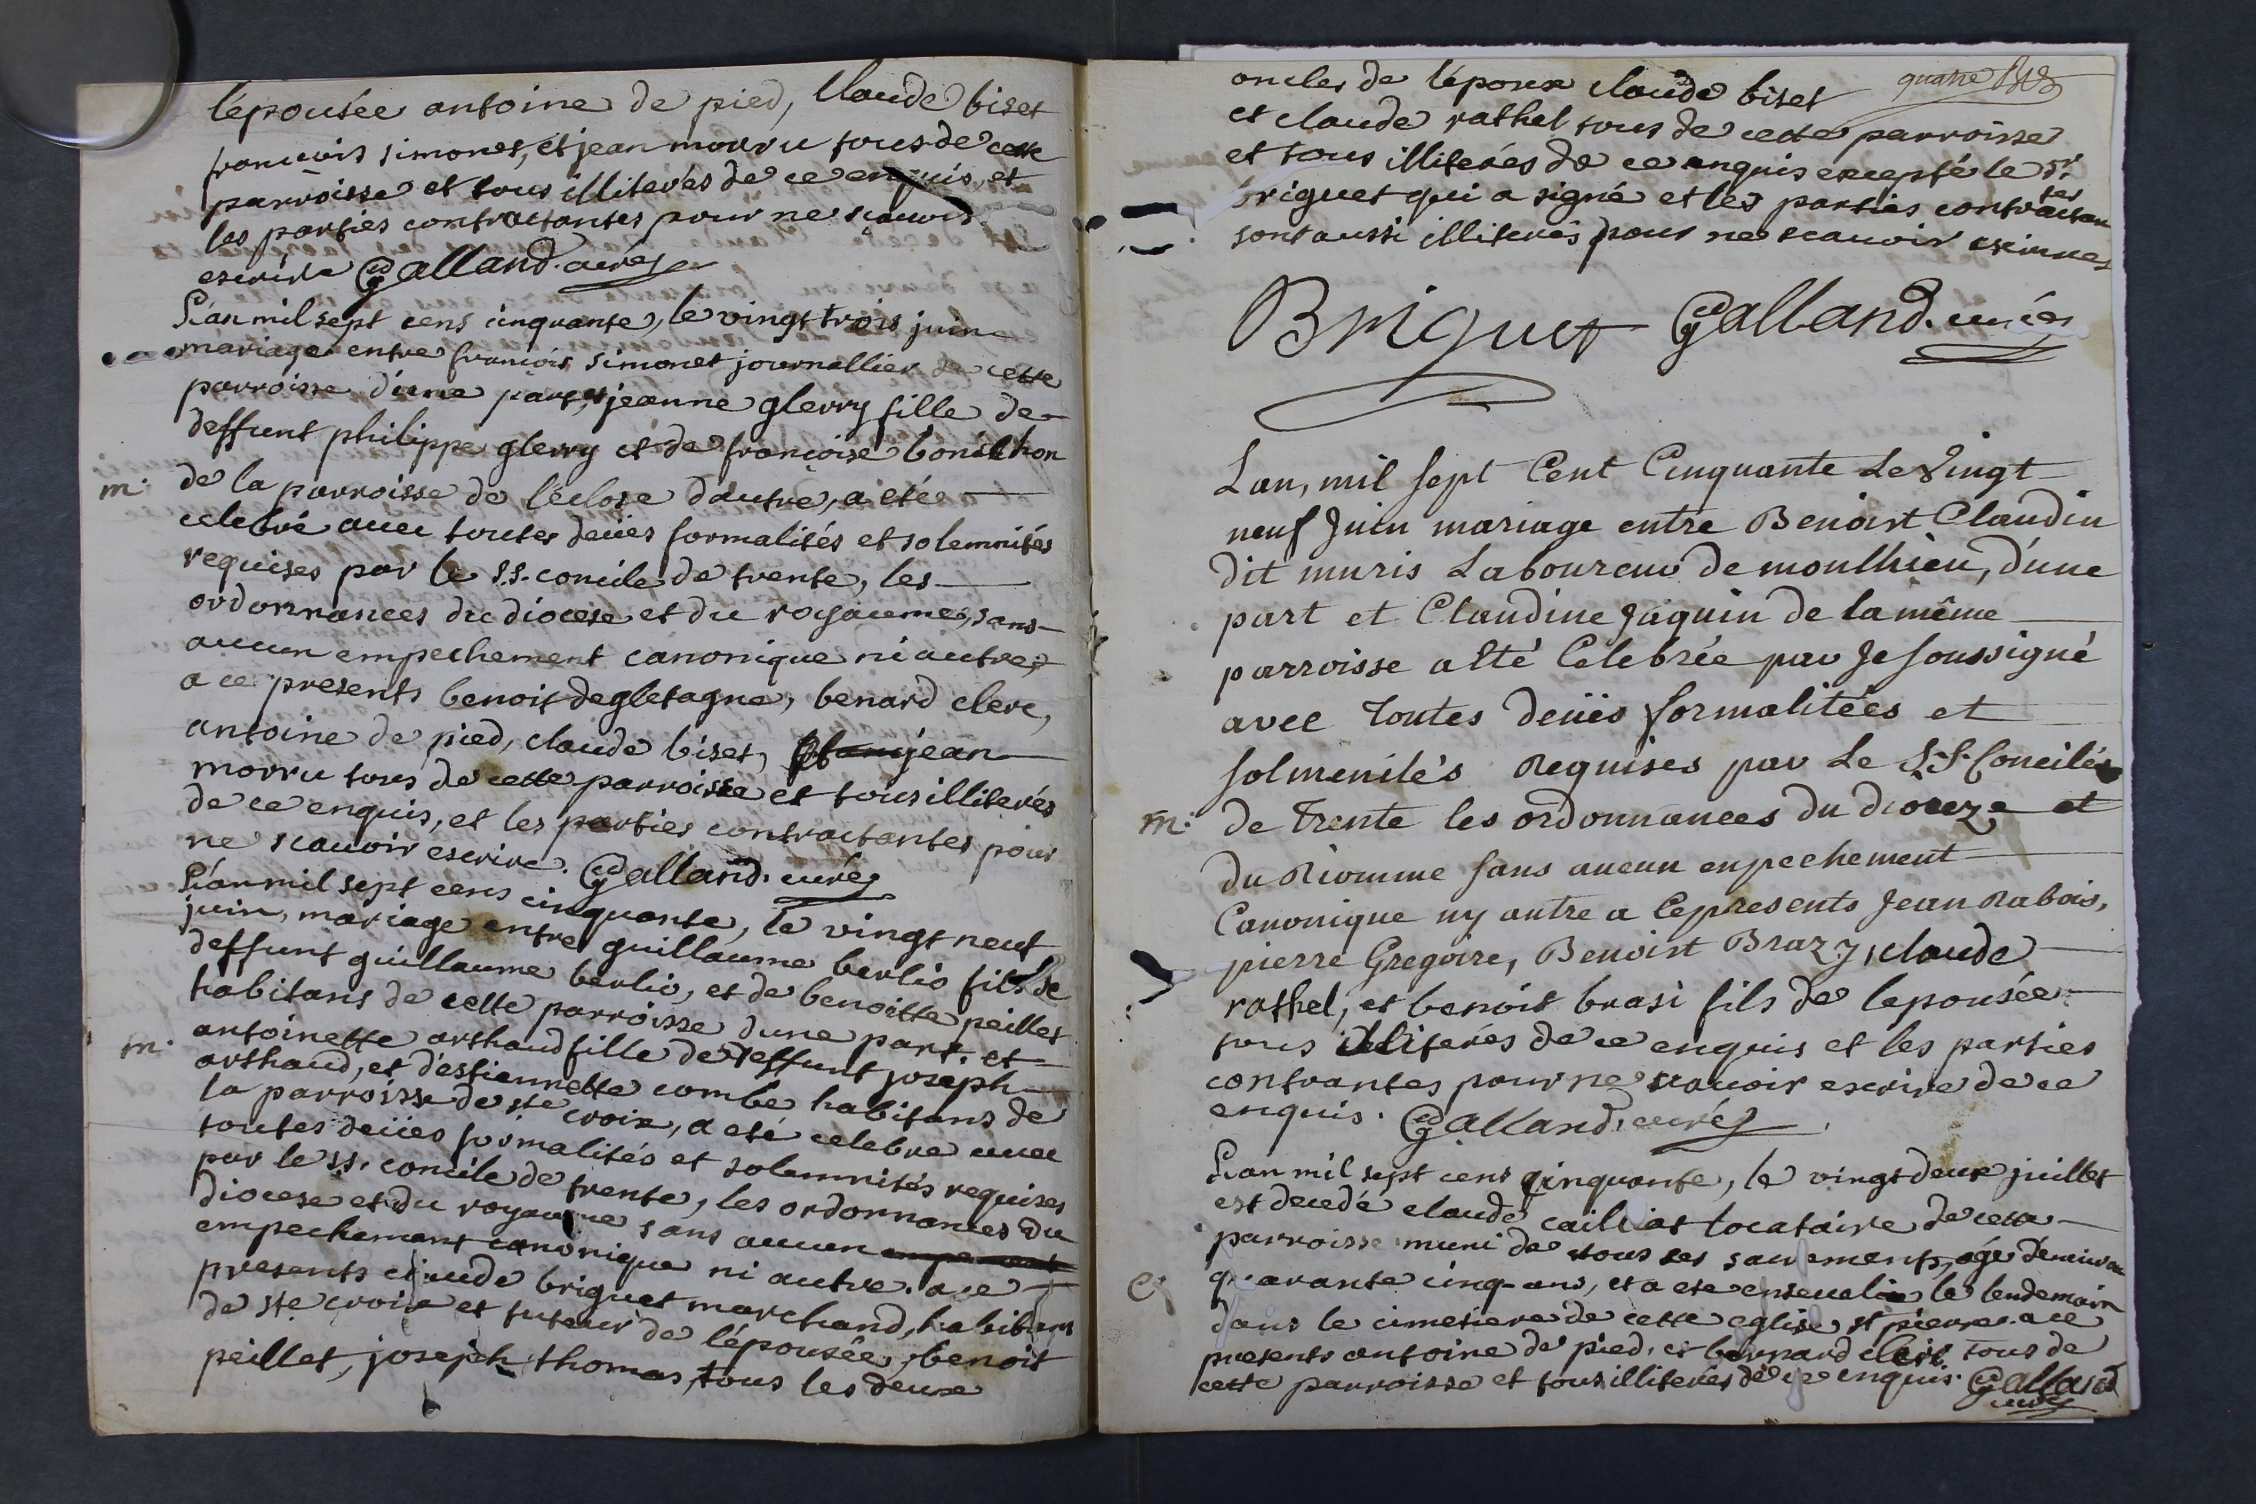 lépousée antoine de pied, Claude biset
francois simonet, et jean morru tous de cette
parroisse et tous illiterés de ce enquis, et
les parties contractantes pour ne scauoir
escrire Galland. curé
L'an mil sept cens cinquante, le vingt trois juin
mariage entre francois simonet journallier de cette
parroisse d'une part, et jeanne glerry fille de
deffunt philippe glerry et de francoise bonithon
m. de la parroisse de leclose d'autre, a eté
celebré auec toutes deües formalités et solemnités
requises par le s.s. concile de trente, les
ordonnances du diocese et du royaume, sans
aucun empechement canonique ni autre,
a ce presents benoit degletagne, benard clerc,
antoine de pied, claude biset, jean
morru tous de cette parroisse et tous illiterés
de ce enquis, et les parties contractantes pour
ne scauoir escrire. Galland. curé
L'an mil sept cens cinquante, le vingt neuf
juin, mariage entre guillaume berlio fils de
deffunt guillaume berlio, et de benoitte peillet
habitans de cette parroisse d'une part, et
m. antoinette arthaud fille de deffunt joseph
arthaud, et d'estiennette combe habitans de
la parroisse de ste croix, a eté celebre auec
toutes deües formalités et solemnités requises
par le s.s. concile de trente, les ordonnances du
diocese et du royaume sans aucun
empechement canonique ni autre. a ce
presents claude briguet marchand, habitant
de ste croix et tuteur de l'épousée, benoit
peillet, joseph thomas, tous les deux
quatre
oncles de l'époux claude biset
et claude rathel tous de cette parroisse
et tous illiterés de ce enquis excepté le sr
briguet qui a signé et les parties contractantes
sont aussi illiterés pour ne scauoir escrire
Briguet Galland. curé
Lan, mil sept Cent Cinquante Le Vingt
neuf Juin mariage entre Benoist Claudin
dit muris Laboureur de monthieu, d'une
part et Claudine Jaquin de la même
parroisse a Eté Célebrée par Je soussigné
avec Toutes deües formalitées et
solmenités Requises par Le S.S. Concile
m. de Trente les ordonnances du dioceze et
du Riomme sans aucun enpechement
Canonique ny autre a Ce presents Jean Rabois,
pierre Gregoire, Benoist Brazy, claude
rathel, et benoit brasi fils de lepousée
tous illiterés de ce enquis et les parties
contrantes pour ne scauoir escrire de ce
enquis. Galland. curé
L'an mil sept cens cinquante, le vingt deux juillet
est decedé claude caillat locataire de cette
parroisse muni de tous ses sacrements, agé d'enuiron
quarante cinq ans, et a ete enseueli le lendemain
dans le cimetiere de cette eglise st pierre. a ce
presents antoine de pied, et bernard clerc tous de
cette parroisse et tous illiterés de ce enquis. Galland
curé